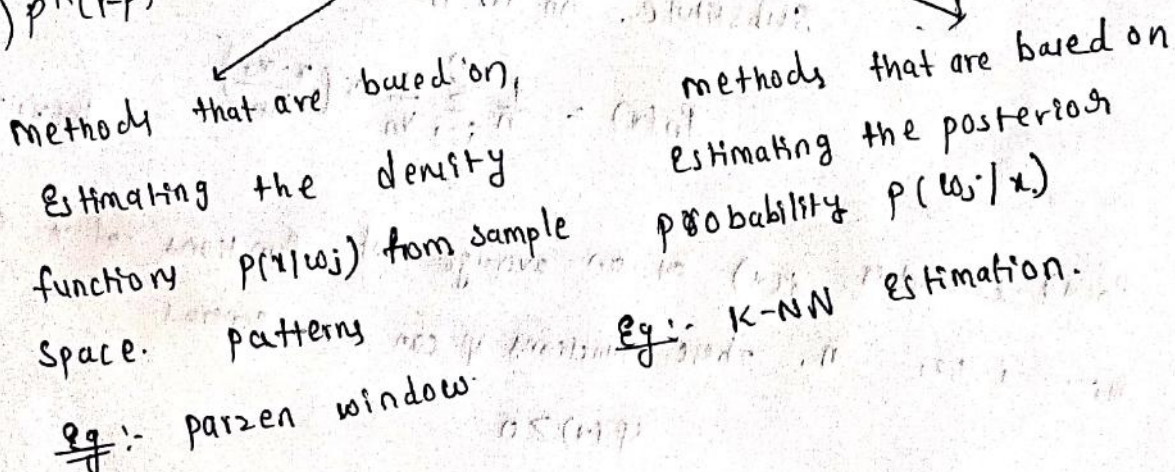 ) p
methods that are based on,
Estimating the density
functions p(x|ωj) from sample
space. patterns
eg :- parzen window.
methods that are based on
estimating the posterior
probability p(ωj|x)
eg :- K-NN estimation.